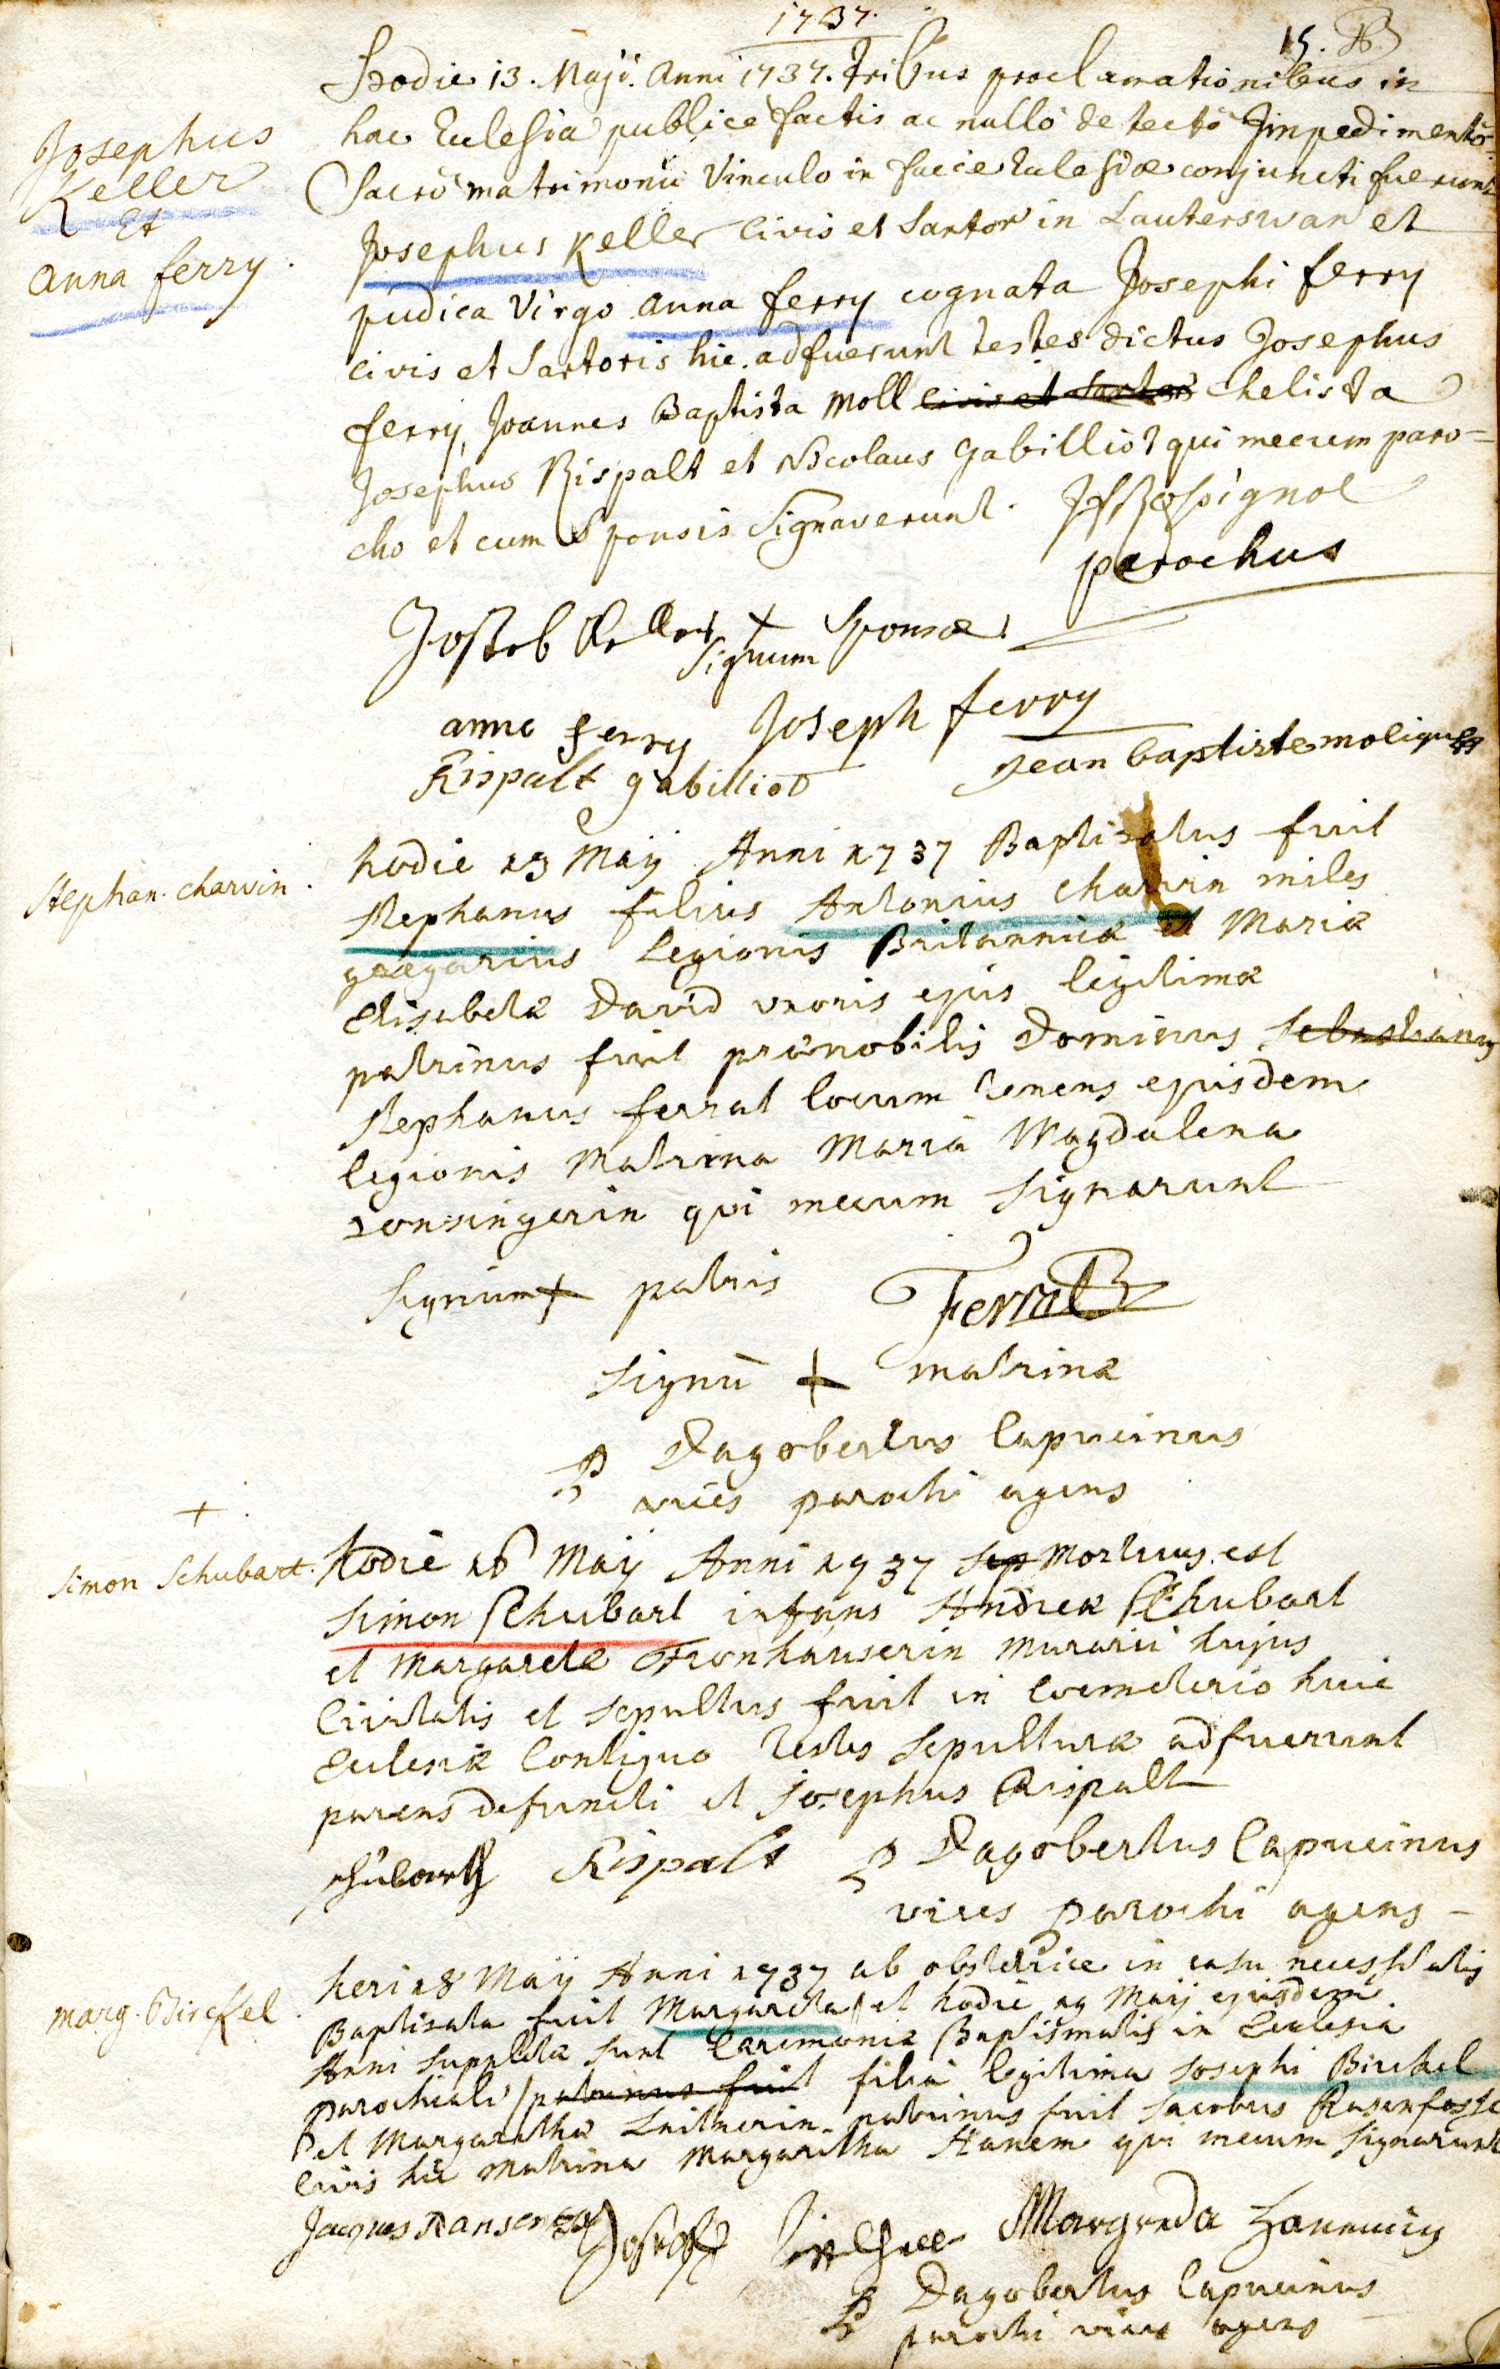 1737.
15.
Hodie 13. Maji. anni 1737. tribus proclamationibus in
hac Eclesia publice factis ac nullo detecto Jmpedimento
Josephus
Keller
Et
anna ferry.
Sacro matrimonii Vinculo in facie Eclesiæ conjuncti fuerunt
Josephus Keller Civis et Sartor in Lauterswan et
pudica Virgo anna ferry cognata Josephi ferry
civis et Sartoris hic. adfuerunt testes dictus Josephus
ferry, Joannes Baptista Moll civis et Sartor chelista
Josephus Rispalt et Nicolaus Gabilliot qui mecum paro=
cho et cum Sponsis Signaverunt. Rossignol
parochus
Joseb Keller + Sponsæ
Signum
anna ferry Joseph ferry
Rispalt gabilliod Jean baptiste molique
Stephan. charvin.
hodie 13 Maij Anni 1737 Baptisatus fuit
Stephanus filius Antonius Charvin miles
gregarius Legionis Britannicæ et Mariæ
Elisabetæ David uxoris ejus legitimæ
patrinus fuit prænobilis Dominus Sebastianus
Stephanus ferrat locum tenens ejusdem
legionis Matrina Maria Magdalena
qui mecum signarunt
Signum + patris Ferrat
Signū + matrinæ
P Dagobertus Capucinus
vices parochi agens
+
Simon Schubart.
hodie 16 Maij Anni 1737 sep Mortuus est
Simon Schubart infans Andreæ Schubart
et Margaretæ Fronhäuserin murarii hujus
Civitatis et sepultus fuit in Coemeterio huic
Eclesiæ Contiguo testes Sepulturæ adfuerunt
parens defuncti et Josephus Rispalt
schubart Rispalt P Dagobertus Capucinus
vices parochi agens -
marg. Birckel
heri 18 Maij Anni 1737 ab obstetrice in casu necessitatis
Baptisata fuit Margareta et hodie 19 Maij ejusdem
Anni suppletæ sunt Caremoniæ Baptismatis in Eclesia
parochiali patrinus fuit filia legitima Josephi Birckel
et Margarethæ patrinus fuit Jacobus Rasenfosse
Civis hic Matrina Margaritha Hanem qui mecum signarunt
Jacques Joseph Margreda
P Dagobertus Capucinus
parochi vices agens